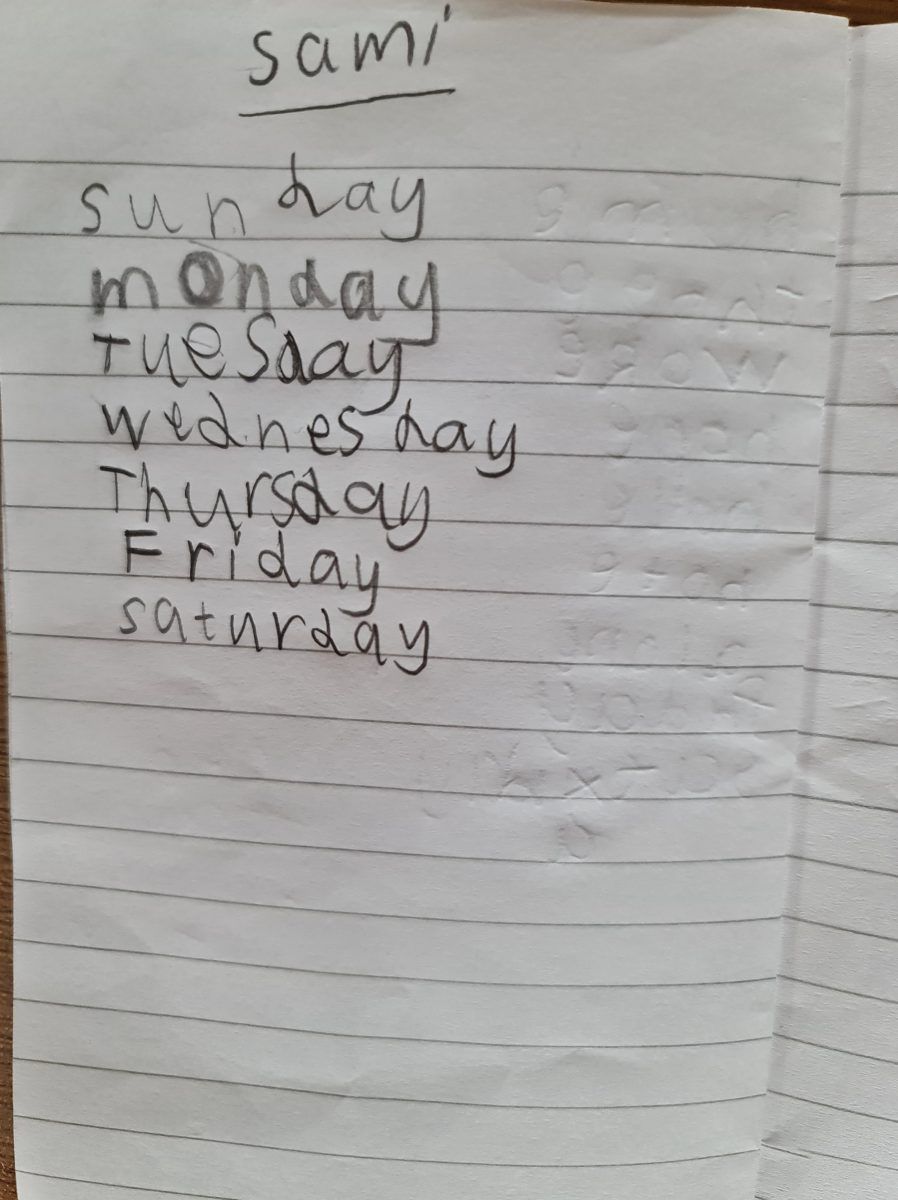 sami
sunday
monday
Tuesday
wednesday
Thursday
Friday
saturday